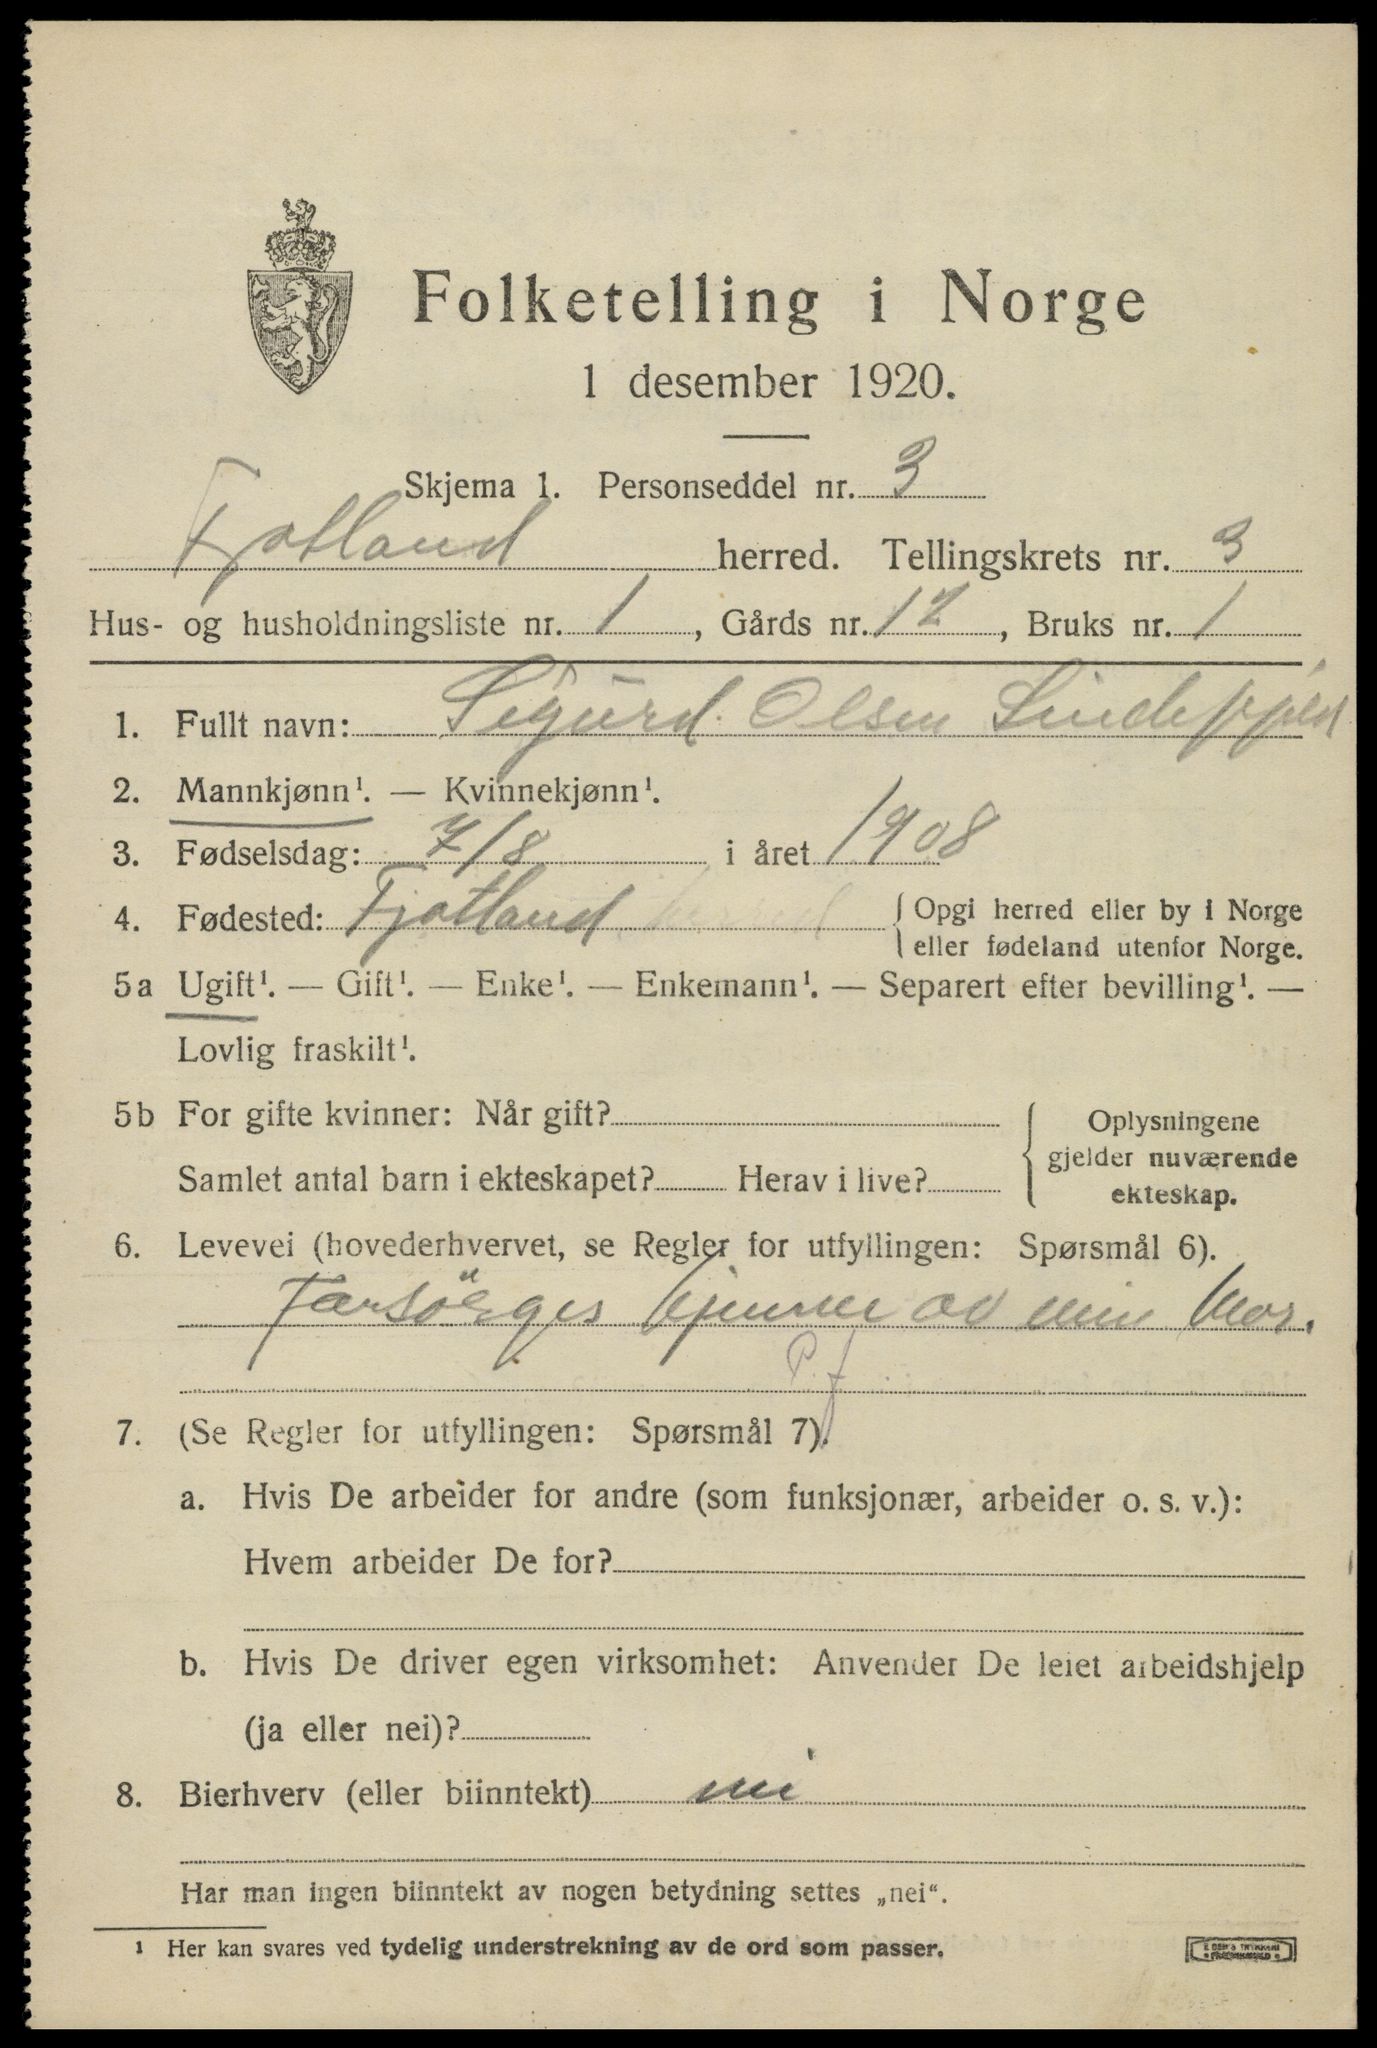 Folketelling i Norge
1 desember 1920.
Skjema 1. Personseddel nr. 3
Fjotland herred. Tellingskrets nr. 3
Hus- og husholdningsliste nr. 1, Gårds nr. 12, Bruks nr. 1
1. Fullt navn: Sigurd Olsen
2. Mannkjønn¹. — Kvinnekjønn¹.
3. Fødselsdag: 7/8 i året 1908
4. Fødested: Fjotland herred { Opgi herred eller by i Norge
eller fødeland utenfor Norge.
5a Ugift¹. — Gift¹. — Enke¹. — Enkemann¹. — Separert efter bevilling¹. —
Lovlig fraskilt¹.
5b For gifte kvinner: Når gift?
Samlet antal barn i ekteskapet? Herav i live?
{ Oplysningene
gjelder nuværende
ekteskap.
6. Levevei (hovederhvervet, se Regler for utfyllingen: Spørsmål 6).
Forsörges hjemme av min Mor.
P. f
7. (Se Regler for utfyllingen: Spørsmål 7).
a. Hvis De arbeider for andre (som funksjonær, arbeider o. s. v.):
Hvem arbeider De for?
b. Hvis De driver egen virksomhet: Anvender De leiet arbeidshjelp
(ja eller nei)?
8. Bierhverv (eller biinntekt) nei
Har man ingen biinntekt av nogen betydning settes „nei“.
¹ Her kan svares ved tydelig understrekning av de ord som passer.